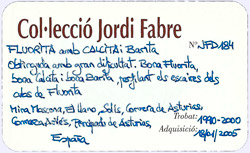 Col·lecció Jordi Fabre
FLUORITA amb CALCITA i Barita
Nº JFD184
Obtinguda amb gran dificultat. Bona Fluorita,
bona calcita i bona Barita, perfilant els escaires dels
cubs de Fluorita
Mina Moscona, El Llano, Solís, Corvera de Asturias,
Comarca Avilés, Principado de Asturias,
España
Trobat: 1990-2000
Adquisició: 18/01/2005